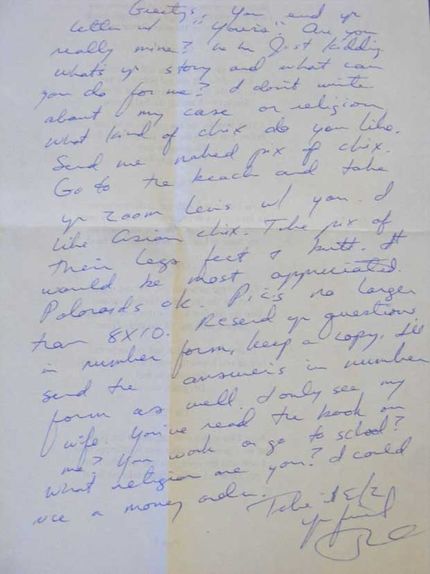 Greetings, You end yr
letter w/ "yours". Are you
really mine? Just kidding
whats yr story and what can
you do for me? I don't write
about my case or religion
what kind of chix do you like.
Send me naked pix of chix.
Go to the beach and take
yr zoom lens w/ you. I
like asian chix. Take pix of
their legs feet & butt. It
would be most appreciated.
Poloroids ok. Pics no larger
than 8X10. Resend yr questions
in number form, keep a copy. I'll
send the answers in number
form as well. I only see my
wife. You've read the book on
me? You work or go to school?
What religion are you? I could
use a money order. Take
yr friend